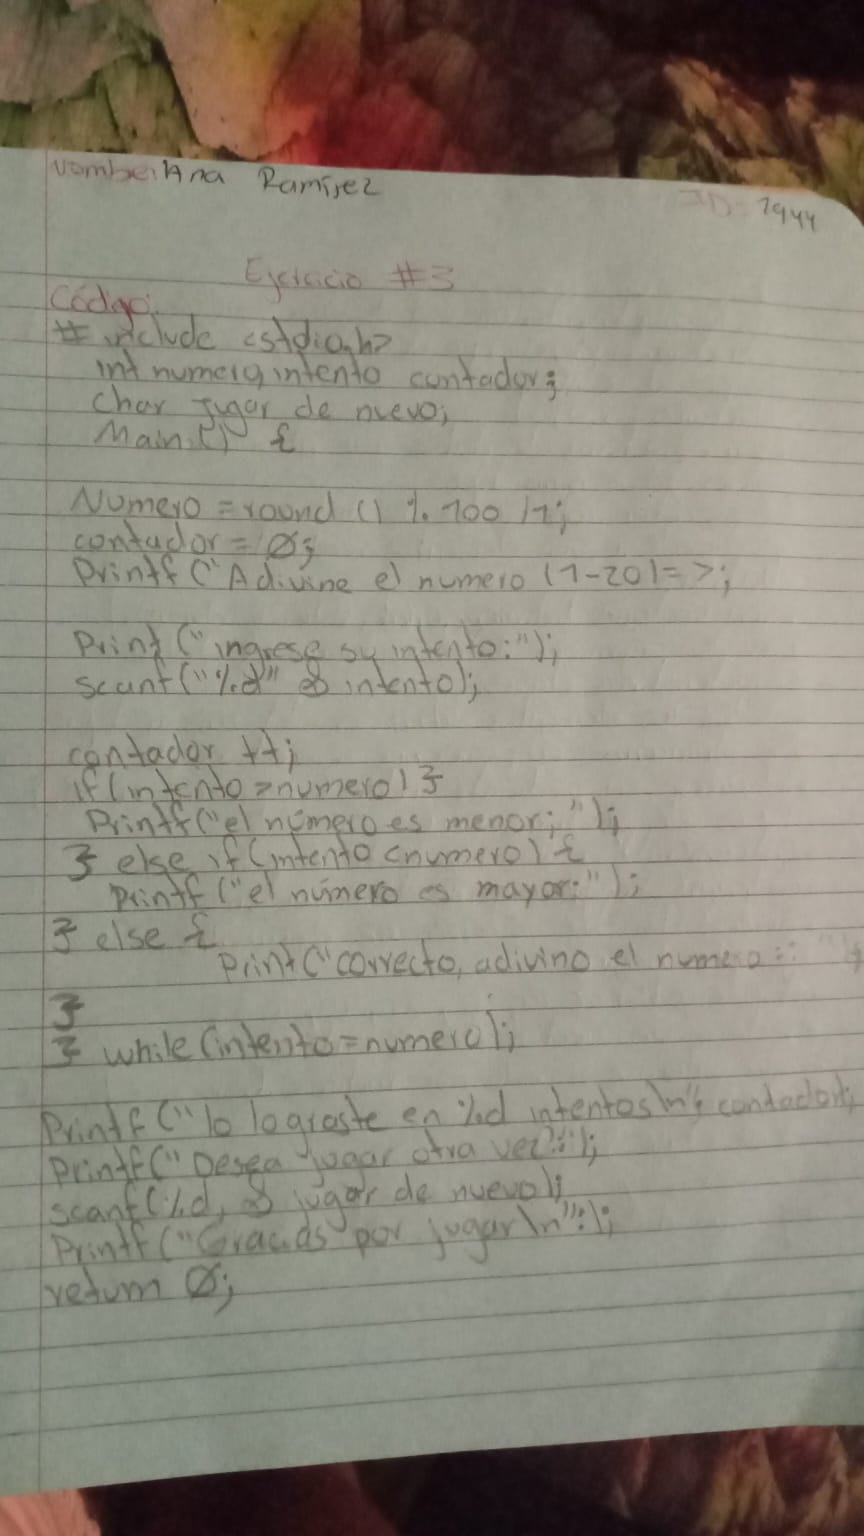 Nombre: Ana Ramírez
ID: 1944
Ejercicio #3
Código:
# include <stdio.h>
int numero, intento contador;
char jugar de nuevo;
Main () {
Numero = round () %. 100 /1;
contador = 0;
Printf ("Adivine el numero (1-20) = >;
Print ("ingrese su intento:");
scanf ("%d" & intento);
contador ++;
if (intento > numero) }
Printf ("el número es menor; ");
} else if (intento < numero) {
printf ("el número es mayor:");
} else {
print ("correcto, adivino el numero
}
} while (intento = numero);
Printf ("lo lograste en %d intentos \n"; contador);
Printf (" Desea jugar otra vez:");
scanf (%d, & jugar de nuevo);
Printf ("Gracias por jugar \n":);
return 0;